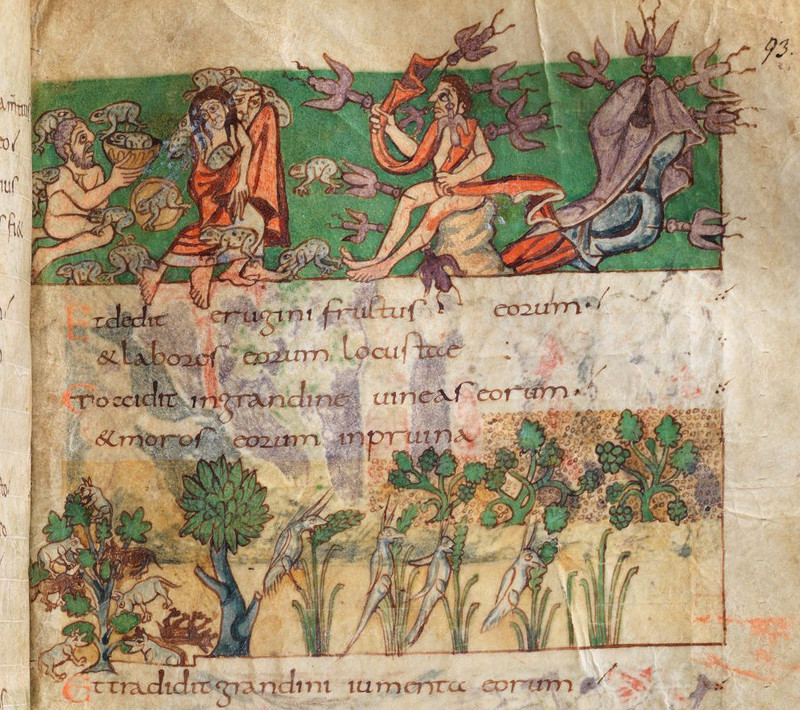 93.
Et dedit erugini fructus eorum·
& labores eorum locustae
Et occidit ingrandine uineas eorum·
& moros eorum inpruina
Et tradidit grandini iumenta eorum